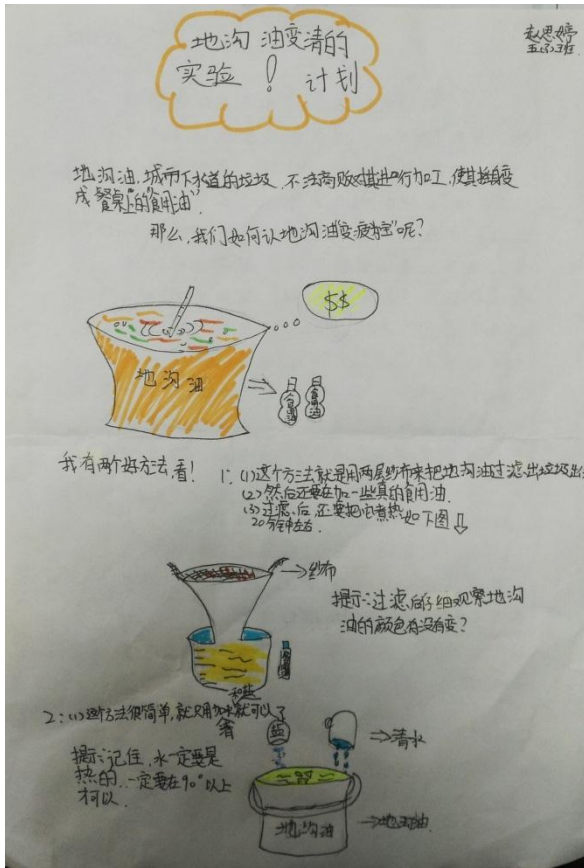 地沟油变清的
实验! 计划
赵思婷
五(3)班
地沟油,城市下水道的垃圾,不法商贩对其进行加工,使其摇身变
成餐桌上的"食用油".
那么,我们如何认地沟油"变疲为宝"呢?
$$
地沟油
食用油
食用油
我有两个好方法,看!
1: (1)这个方法就是用两层纱布来把地沟油过滤出垃圾出
(2)然后还要在加一些真的食用油.
(3)过滤后,还要把它煮热
20分钟左右.
如下图
纱布
提示:过滤后仔细观察地沟
油的颜色有没有变?
食用油
和盐
2:(1)这个方法很简单,就只用加水就可以了
看
盐
清水
提示:记住,水一定要是
热的,一定要在90°以上
才可以.
地沟油
地沟油